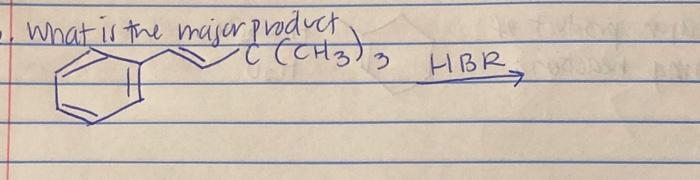 . What is the major product
C (CH3)3 HBR